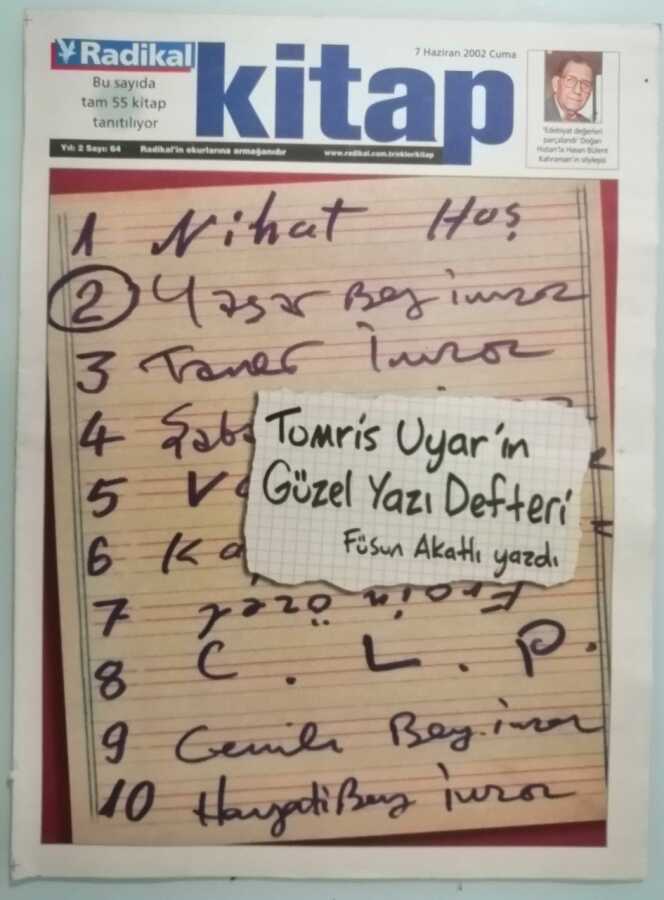 Radikal
kitap
Bu sayıda
tam 55 kitap
tanıtılıyor
7 Haziran 2002 Cuma
'Edebiyat değerleri
parçalandı' Doğan
Hızlan'la Hasan Bülent
Kahraman'ın söyleşisi
Yıl: 2 Sayı: 64 Radikal'in okurlarına armağanıdır www.radikal.com.tr/ekler/kitap
1 Nihat Hoş
2 Yaşar Bey
3 Taner
4
5
6
Tomris Uyar'ın
Güzel Yazı Defteri
Füsun Akatlı yazdı
7
8 C. L. P.
9 Bey
10 Hayati Bey